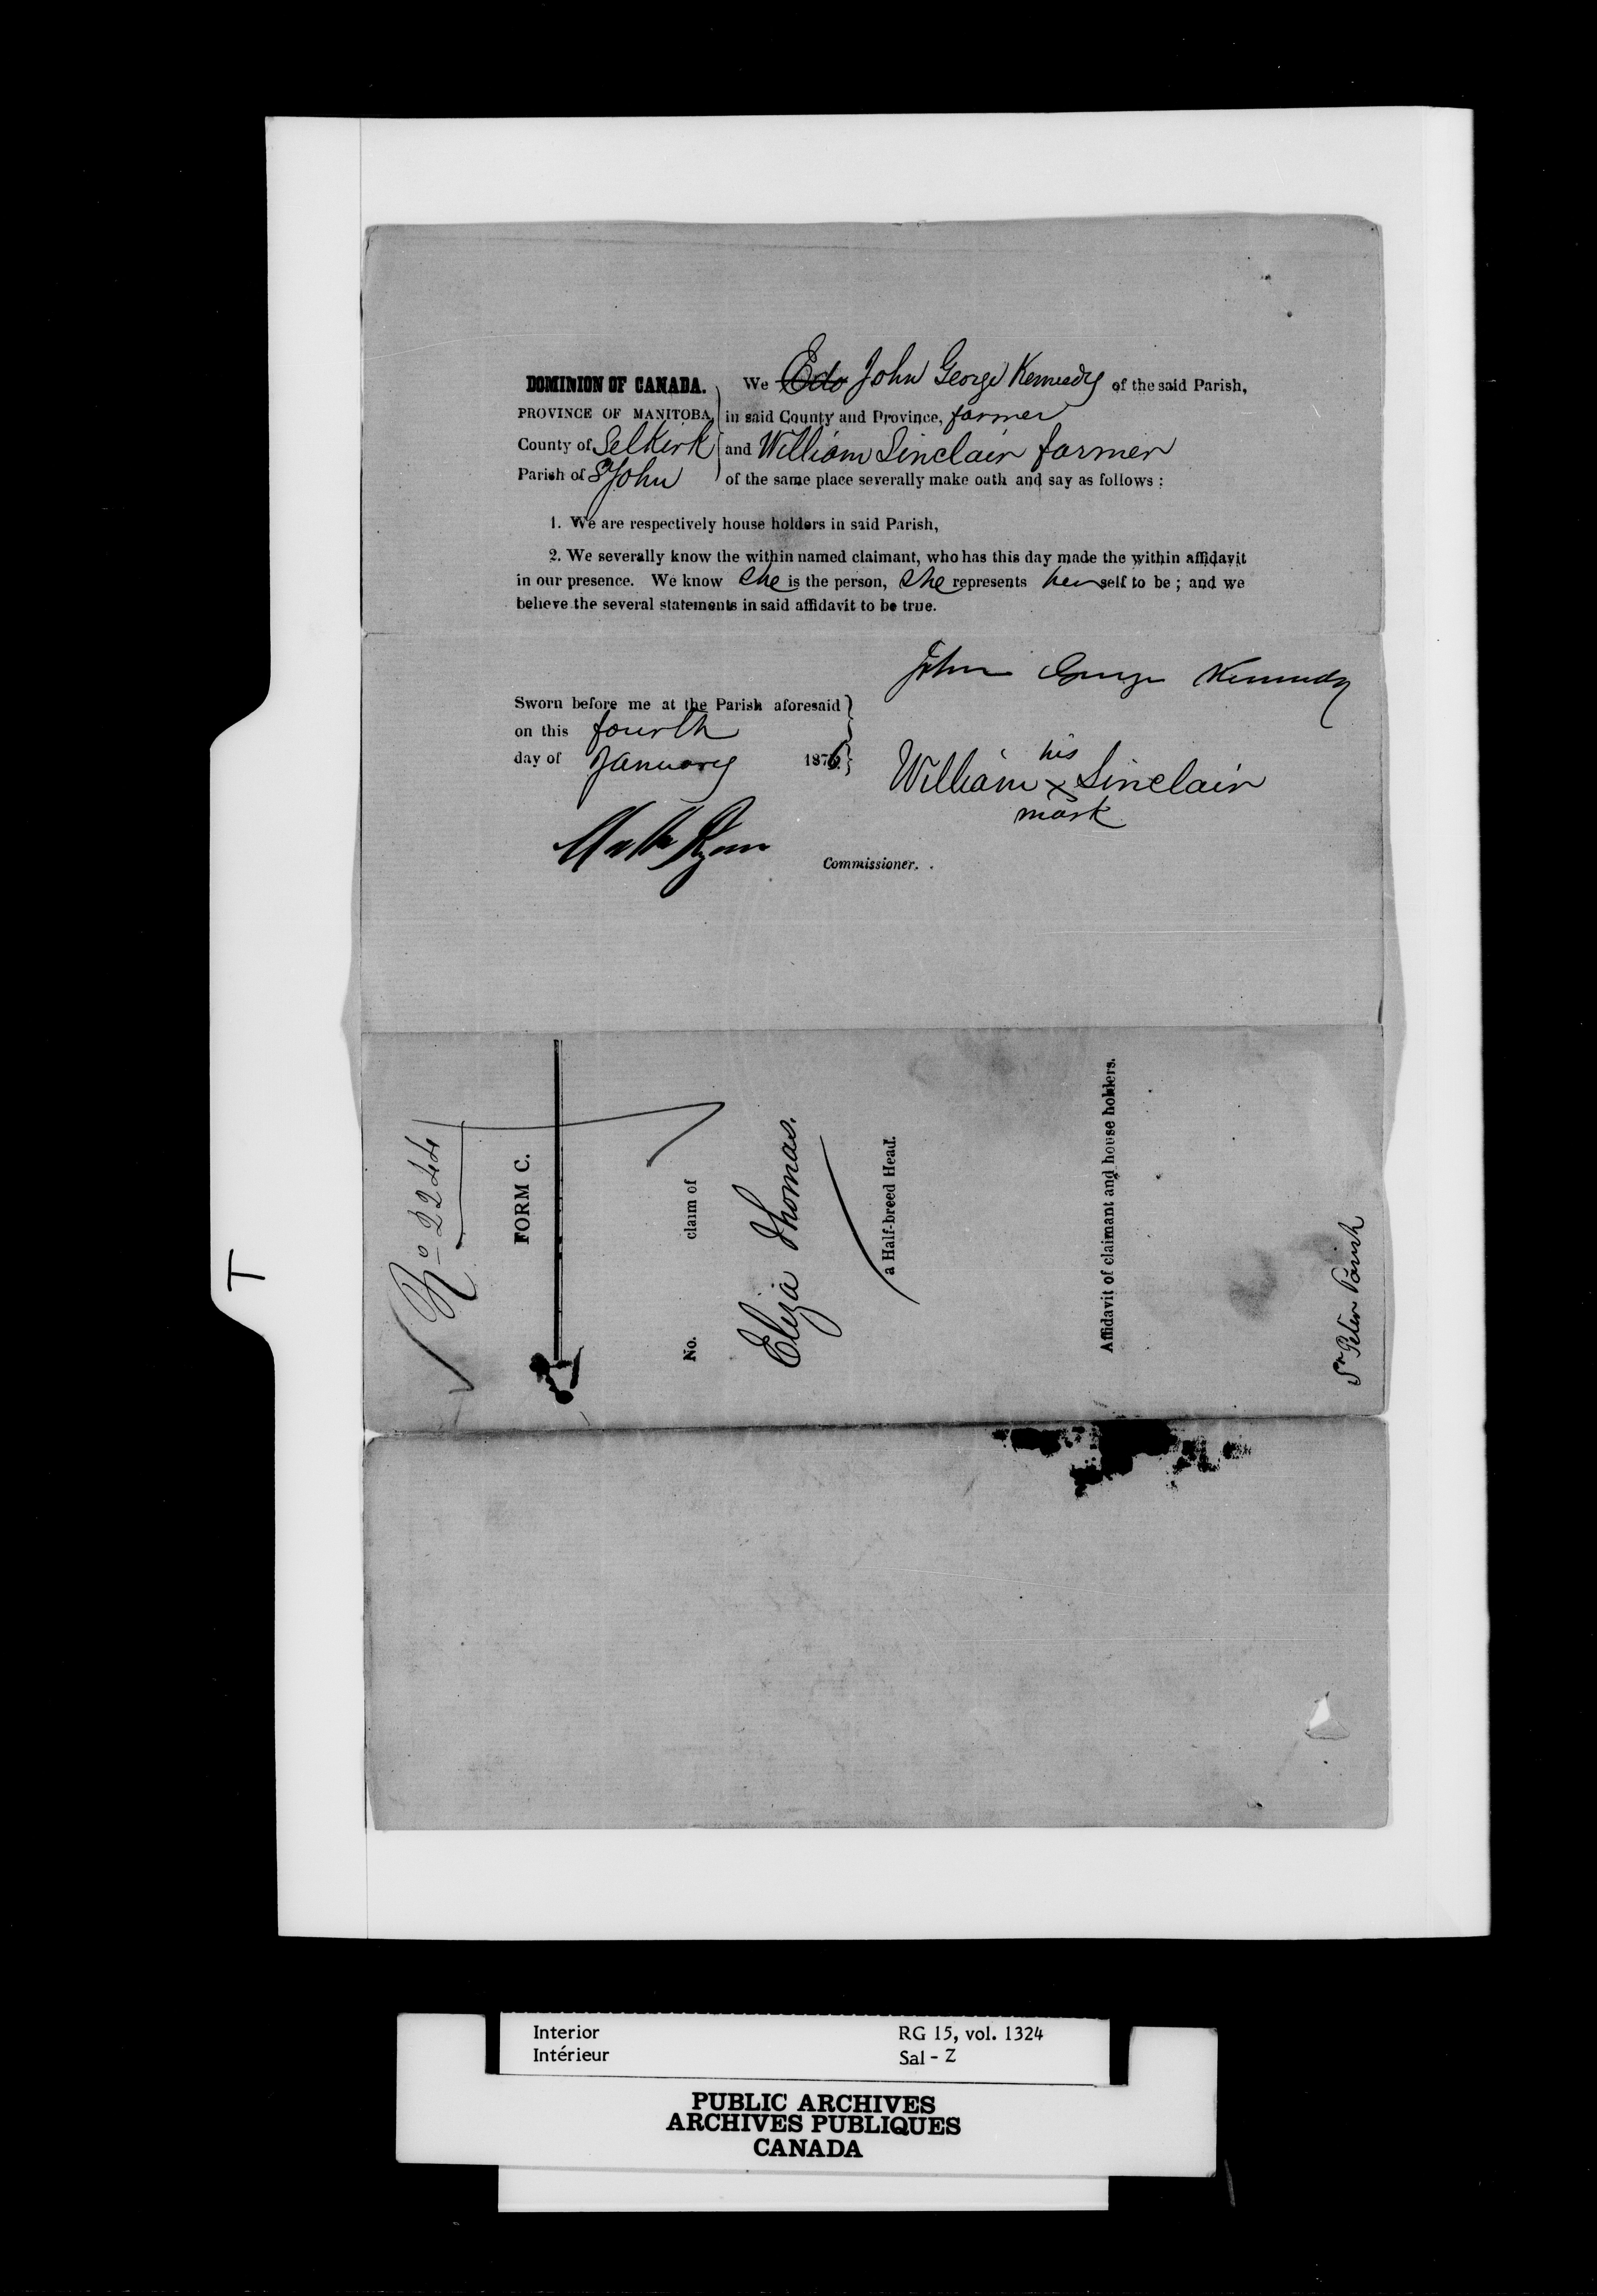 DOMINION OF CANADA.
PROVINCE OF MANITOBA,
County of Selkirk
Parish of St John
We Edo John George Kennedy of the said Parish,
in said County and Province, farmer
and William Sinclair farmer
of the same place severally make oath and say as follows :
1. We are respectively house holders in said Parish,
2. We severally know the within named claimant, who has this day made the within affidavit
in our presence. We know She is the person, She represents herself to be ; and we
believe the several statements in said affidavit to be true.
John George Kennedy
Sworn before me at the Parish aforesaid
on this fourth
day of January 1876
his
William x Sinclair
mark
Matt Ryan
Commissioner.
No 2244
FORM C.
No. claim of
Eliza Thomas.
a Half-breed Head.
Affidavit of claimant and house holders.
St Peters Parish
T
Interior
Intérieur
RG 15, vol. 1324
Sal - Z
PUBLIC ARCHIVES
ARCHIVES PUBLIQUES
CANADA